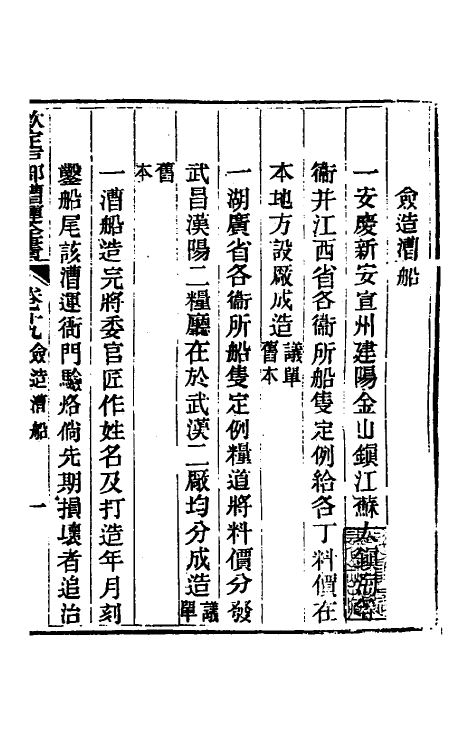 僉造漕船
一安慶新安宣州建陽金山鎮江蘇太鎮
衞并江西省各衞所船隻定例給各丁料價在
本地方設厰成造議單舊本
一湖廣省各衞所船隻定例糧道將料價分發
武昌漢陽二糧廳在於武漢二厰均分成造議單
舊本
一漕船造完將委官匠作姓名及打造年月刻
鑿船尾該漕運衙門驗烙倘先期損壞者追治
欽定戶部漕運全書 卷十九 僉造漕船 一